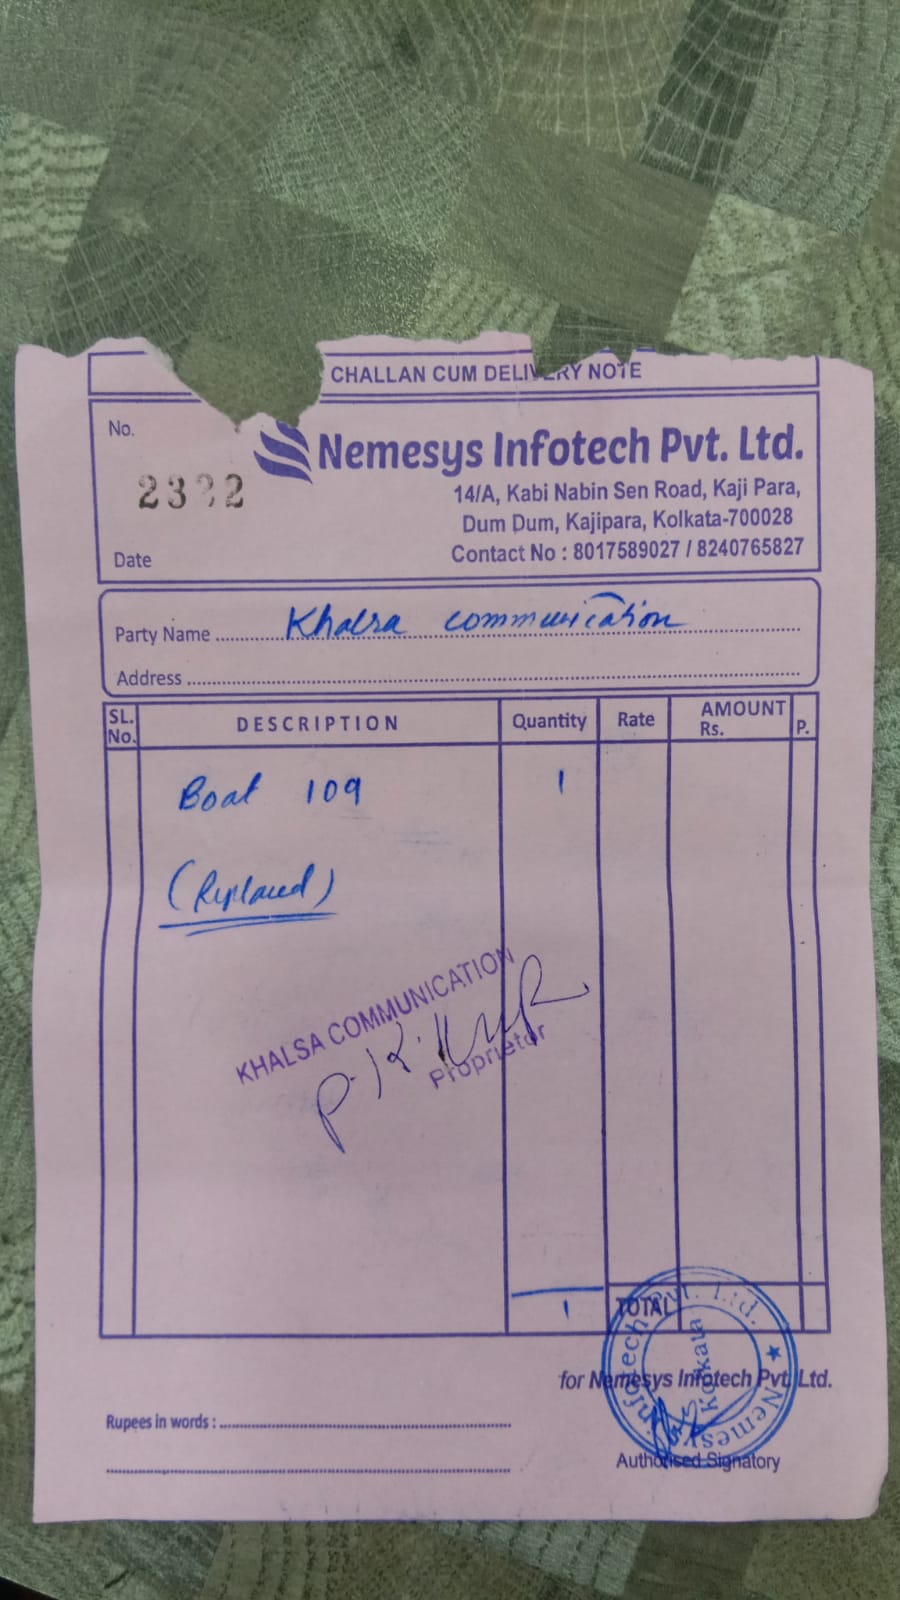 CHALLAN CUM DELIVERY NOTE
No.
Nemesys Infotech Pvt. Ltd.
14/A, Kabi Nabin Sen Road, Kaji Para,
Dum Dum, Kajipara, Kolkata-700028
Contact No : 8017589027 / 8240765827
Date
Party Name Khalsa communication
Address
SL. No. DESCRIPTION Quantity Rate AMOUNT Rs. P.
Boat 109 1
(Replaced)
KHALSA COMMUNICATION
Proprietor
1 TOTAL
for Nemesys Infotech Pvt. Ltd.
Nemesys Infotech Pvt. Ltd. ★
Kolkata
Rupees in words :
Authorised Signatory